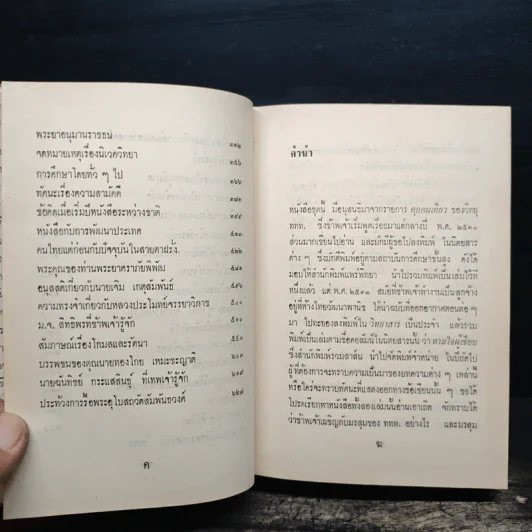 พระยาอนุมานราชธน ๓๑๒
จดหมายเหตุเรื่องนิเวศวิทยา ๓๕๖
การศึกษาโดยทั่ว ๆ ไป
ทัศนะเรื่องความสามัคคี
ข้อคิดเมื่อเริ่มปีหนังสือระหว่างชาติ
หนังสือกับการพัฒนาประเทศ
คนไทยแต่ก่อนกับปัจจุบันในสายตาฝรั่ง
พระคุณของท่านพระยาศราภัยพิพัฒ
อนุสสติเกี่ยวกับนายเจิม เกตุสัมพันธ์
ความทรงจำเกี่ยวกับหลวงประโมทย์จรรยาวิภาช
ม.จ. สิทธิพรที่ข้าพเจ้ารู้จัก
สัมภาษณ์เรื่องโกมลและรัตนา
บรรพชนของคุณนายทองไกย เหมะชะญาติ ๖๐๑
นายฉันทิชย์ กระแสสินธุ์ ที่เทพเจ้ารู้จัก ๖๐๙
ประท้วงการรื้อพระอุโบสถวัดสัมพันธวงศ์ ๖๒๗
ค
ลำนำ
หนังสือชุดนี้ มีอนุสนธิมาจากรายการ คุยคนเดียว ของวิทยุ
ททท. ซึ่งข้าพเจ้าเริ่มพูดเรื่อยมาแต่กลางปี พ.ศ. ๒๕๑๐
ส่วนมากเขียนไปอ่าน และมักมีผู้ขอไปลงพิมพ์ ในเอกสาร
ต่าง ๆ ซึ่งมักตีพิมพ์อยู่ตามสถาบันการศึกษาขั้นสูง ต่อได้
มอบให้สำนักพิมพ์แพร่พิทยา นำไปรวมพิมพ์เป็นเล่มไว้ที่
หนึ่งแล้ว แต่ พ.ศ. ๒๕๑๓ สมัยที่ข้าพเจ้าทำงานเป็นลูกจ้าง
อยู่ที่ห้างไทยวัฒนาพานิช ได้นำฉบับที่ออกอากาศตอนต่อ ๆ
มา ไปทะยอยลงพิมพ์ใน วิทยาสาร เป็นประจำ แล้วรวม
พิมพ์เป็นเล่มตามชื่อคอลัมน์ในเอกสารนั้นว่า ตามใจผู้เขียน
ซึ่งสำนักพิมพ์รวมสาส์น นำไปจัดพิมพ์จำหน่าย ในปีถัดไป
ผู้ที่ต้องการจะทราบความเป็นมาของบทความต่าง ๆ เหล่านี้
หรือใคร่จะทราบทัศนะที่แสดงออกทางข้อเขียนนั้น ๆ ขอได้
โปรดเรียกหาหนังสือทั้งสองเล่มนั้นอ่านเอาเถิด จักทราบได้
ว่าข้าพเจ้าเผชิญกับมรสุมของ ททท. อย่างไร และมรสุม
ฆ